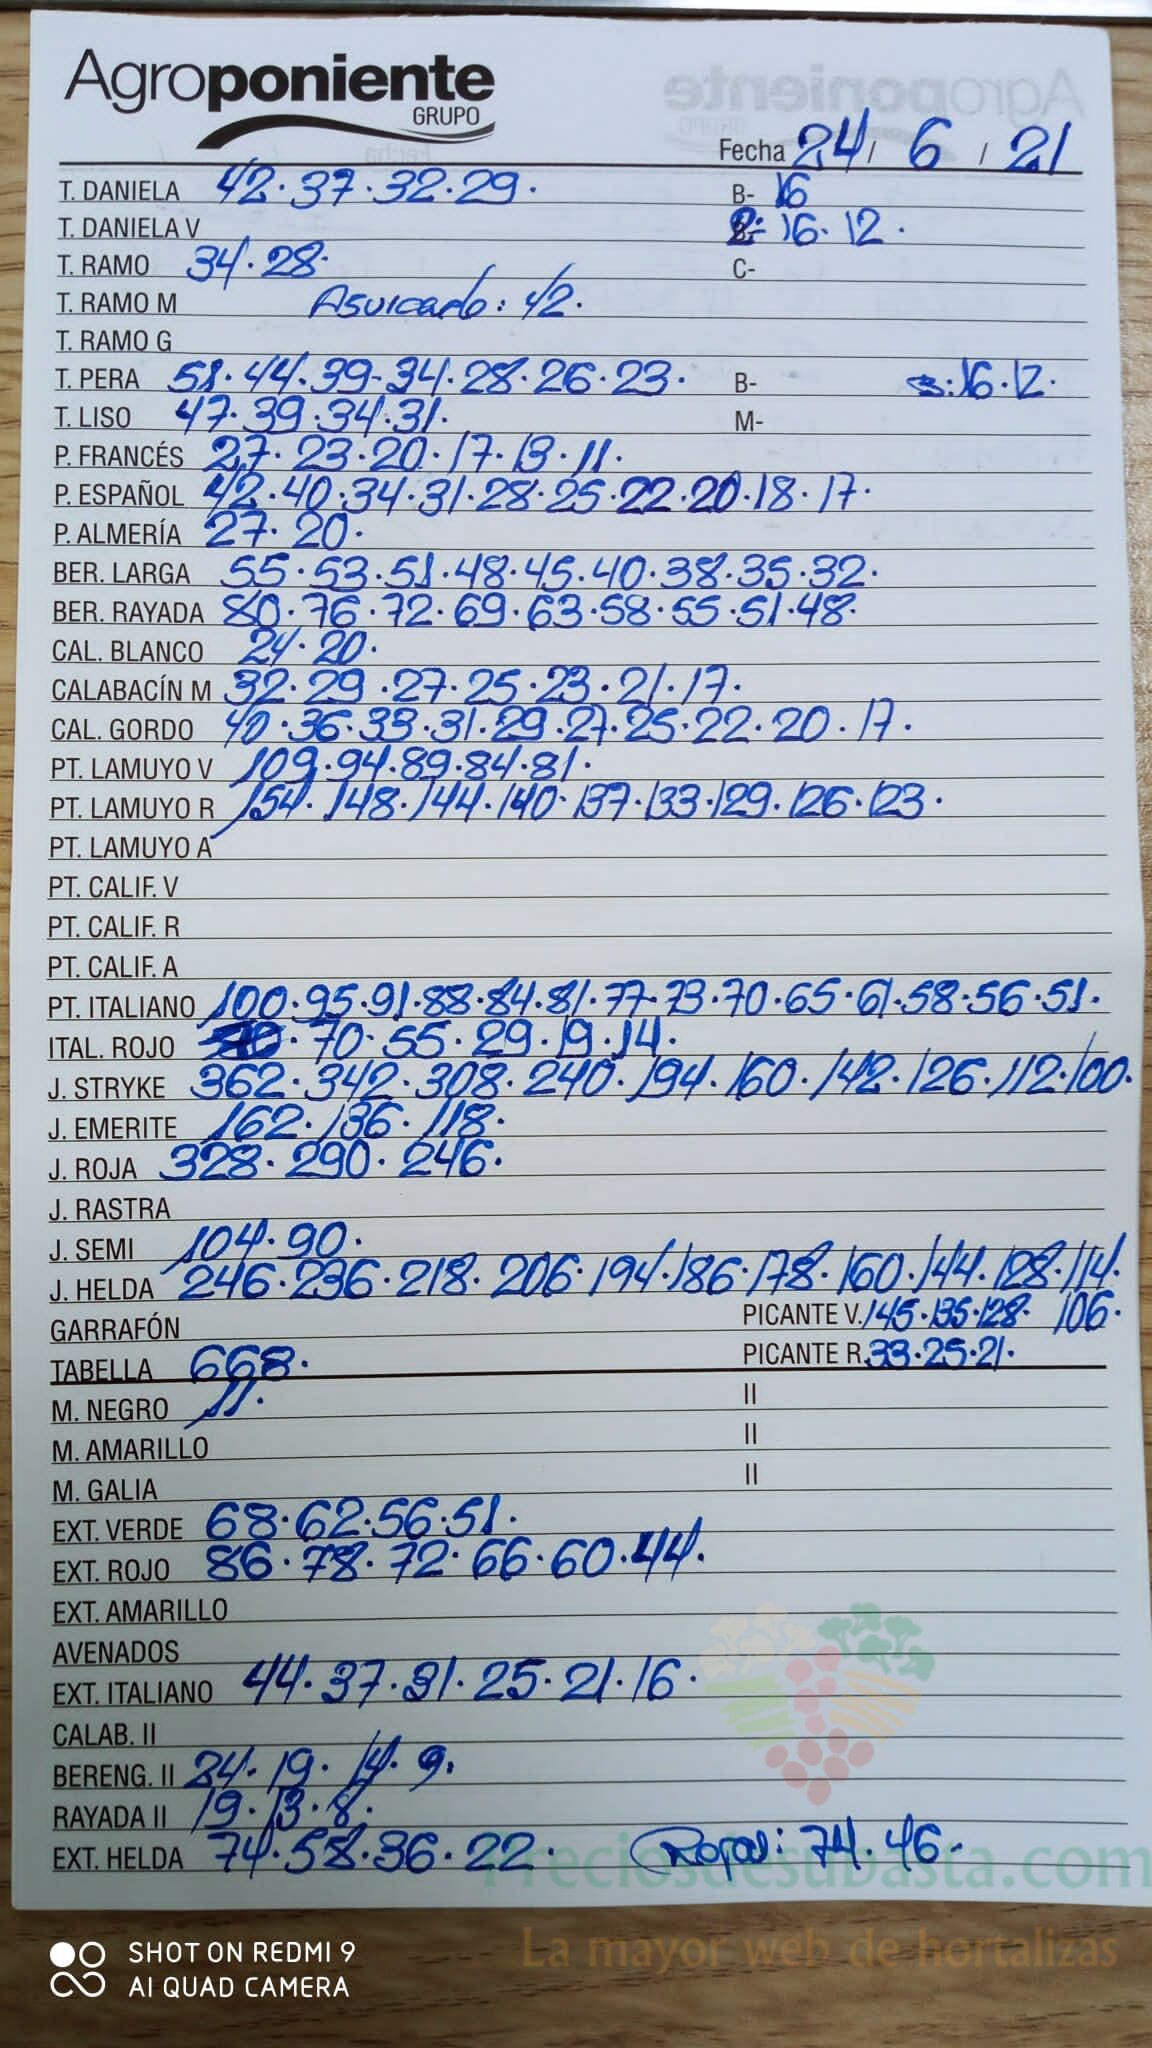 Agroponiente
GRUPO
Fecha 24 / 6 / 21
T. DANIELA 42. 37. 32. 29. B- 16
T. DANIELA V 2: 16. 12.
T. RAMO 34. 28. C-
T. RAMO M Asurcado: 42.
T. RAMO G
T. PERA 51. 44. 39. 34. 28. 26. 23. B- 3: 16. 12.
T. LISO 47. 39. 34. 31. M-
P. FRANCÉS 27. 23. 20. 17. 13. 11.
P. ESPAÑOL 42. 40. 34. 31. 28. 25. 22. 20. 18. 17.
P. ALMERÍA 27. 20.
BER. LARGA 55. 53. 51. 48. 45. 40. 38. 35. 32.
BER. RAYADA 80. 76. 72. 69. 63. 58. 55. 51. 48.
CAL. BLANCO 24. 20.
CALABACÍN M 32. 29. 27. 25. 23. 21. 17.
CAL. GORDO 40. 36. 33. 31. 29. 27. 25. 22. 20. 17.
PT. LAMUYO V 109. 94. 89. 84. 81.
PT. LAMUYO R 154. 148. 144. 140. 137. 133. 129. 126. 123.
PT. LAMUYO A
PT. CALIF. V
PT. CALIF. R
PT. CALIF. A
PT. ITALIANO 100. 95. 91. 88. 84. 81. 77. 73. 70. 65. 61. 58. 56. 51.
ITAL. ROJO 70. 55. 29. 19. 14.
J. STRYKE 362. 342. 308. 240. 194. 160. 142. 126. 112. 100.
J. EMERITE 162. 136. 118.
J. ROJA 328. 290. 246.
J. RASTRA
J. SEMI 104. 90.
J. HELDA 246. 236. 218. 206. 194. 186. 178. 160. 144. 128. 114. 106.
GARRAFÓN PICANTE V. 145. 135. 128.
TABELLA 668. PICANTE R. 33. 25. 21.
M. NEGRO 11. II
M. AMARILLO II
M. GALIA II
EXT. VERDE 68. 62. 56. 51.
EXT. ROJO 86. 78. 72. 66. 60. 44.
EXT. AMARILLO
AVENADOS
EXT. ITALIANO 44. 37. 31. 25. 21. 16.
CALAB. II
BERENG. II 24. 19. 14. 9.
RAYADA II 19. 13. 8.
EXT. HELDA 74. 58. 36. 22. Roja: 74. 46.
Preciosdesubasta.com
La mayor web de hortalizas
SHOT ON REDMI 9
AI QUAD CAMERA